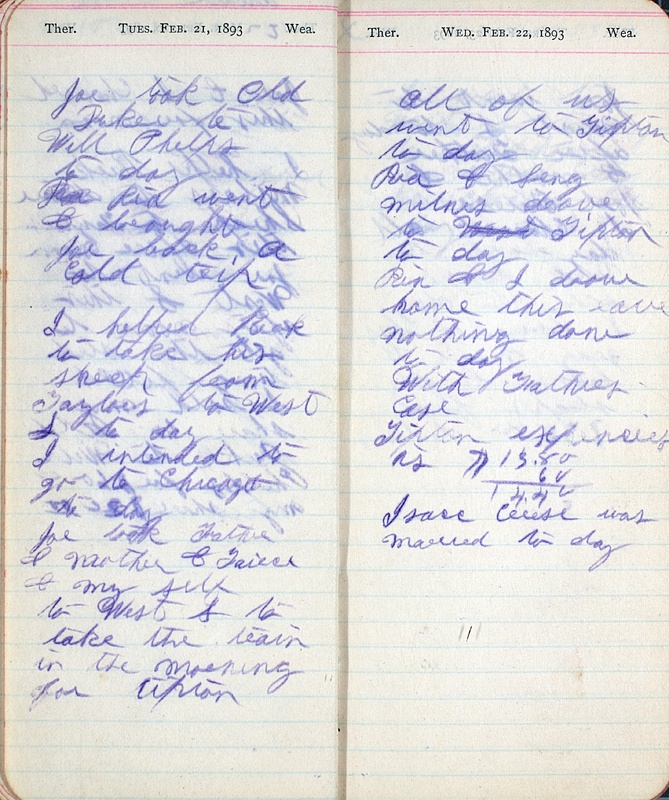 Ther. TUES. FEB. 21, 1893 Wea.
Joe took Old
Duke to
Will Phelps
to day
Ria went
& brought
Joe back, a
Cold trip
I helped
to take his
sheep from
Taylors to West
to day
I intended to
go to Chicago
to day
Joe took Father
& Mother &
& my self
to West & to
take the train
in the morning
for Tipton
Ther. WED. FEB. 22, 1893 Wea.
all of us
went to Tipton
to day
Ria &
drove
to Tipton
to day
Ria & I drove
home this eave
nothing done
to day
With Frathies
Case
Tipton
is 13.80
60
14.40
Isacc was
married to day